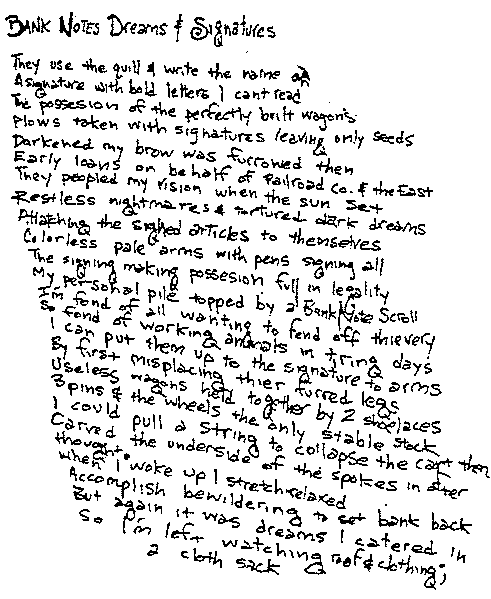 BANK NOTES DREAMS & SIGNATURES
They use the quill & write the name on
A signature with bold letters I cant read
The possesion of the perfectly built wagons
Plows taken with signatures leaving only seeds
Darkened my brow was furrowed then
Early loans on behalf of Railroad Co. & the East
They peopled my vision when the sun set
Restless nightmares & tortured dark dreams
Attaching the signed articles to themselves
Colorless pale arms with pens signing all
The signing making possesion full in legality
My personal pile topped by a Bank Note Scroll
I'm fond of all wanting to fend off thievery
So fond of working animals in tiring days
I can put them up to the signature to arms
By first misplacing thier furred legs
Useless wagons held together by 2 shoelaces
3 pins & the wheels the only stable stock
I could pull a string to collapse the cart then
Carved the underside of the spokes in after thought
When I woke up I stretch relaxed
Accomplish bewildering to set bank back
But again it was dreams I catered in
So I'm left watching roof & clothing;
a cloth sack